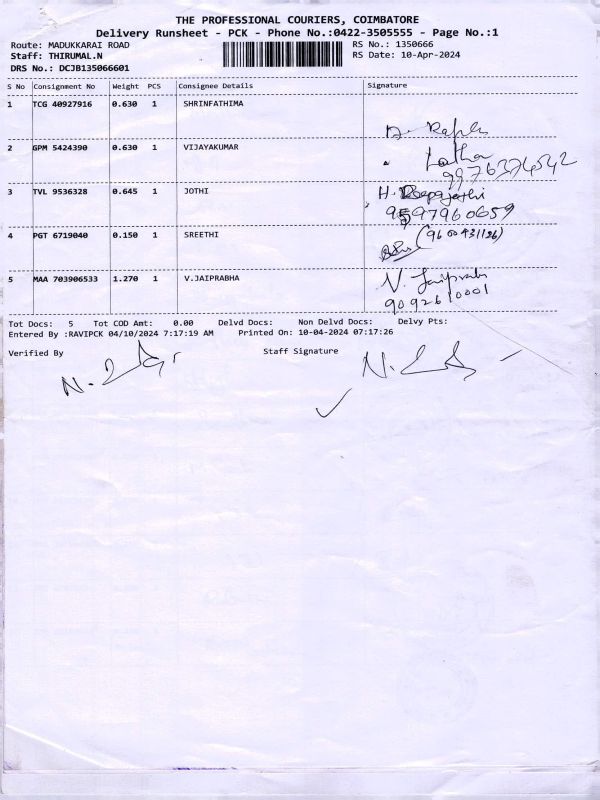 THE PROFESSIONAL COURIERS, COIMBATORE
Delivery Runsheet - PCK - Phone No.:0422-3505555 - Page No.:1
Route: MADUKKARAI ROAD RS No.: 1350666
Staff: THIRUMAL.N RS Date: 10-Apr-2024
DRS No.: DCJB135066601
S No Consignment No Weight PCS Consignee Details Signature
1 TCG 40927916 0.630 1 SHRINFATHIMA
2 GPM 5424390 0.630 1 VIJAYAKUMAR
Latha
9976374542
3 TVL 9536328 0.645 1 JOTHI H.
9597960659
4 PGT 6719040 0.150 1 SREETHI
5 MAA 703906533 1.270 1 V.JAIPRABHA V. Jaiprabha
9092610001
Tot Docs: 5 Tot COD Amt: 0.00 Delvd Docs: Non Delvd Docs: Delvy Pts:
Entered By :RAVIPCK 04/10/2024 7:17:19 AM Printed On: 10-04-2024 07:17:26
Verified By Staff Signature